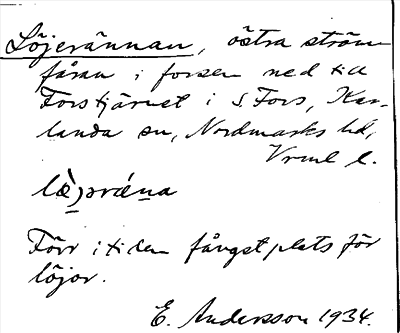 Löjerännan, östra ström-
fåran i forsen ned till
Forstjärnet i S. Fors, Kar-
landa sn, Nordmarks hd,
Vrml l.
Förr i tiden fångstplats för
löjor.
E. Andersson 1934.